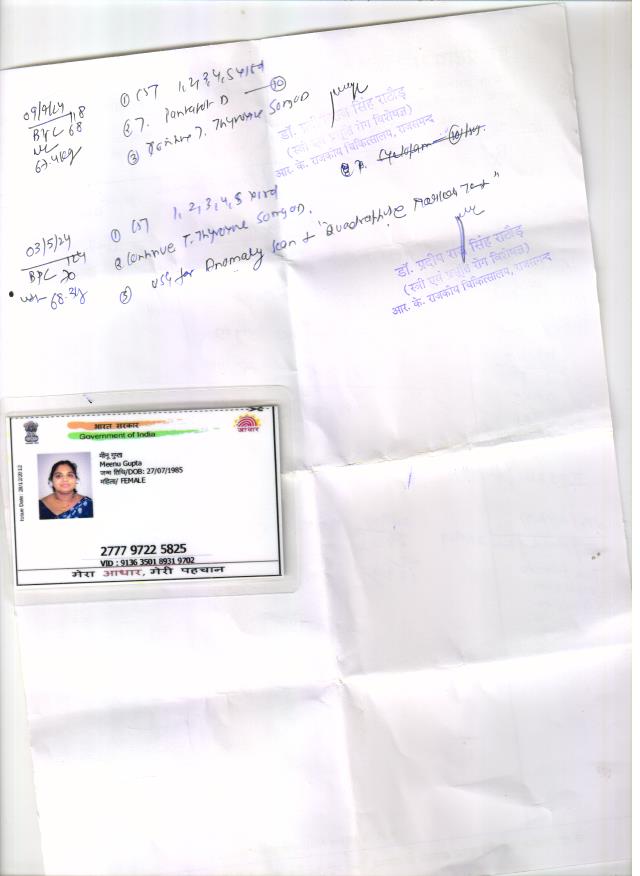 09/4/24
① CST 1,2,3,4,5
② T. Pantatop D — ⑩
③ Continue T. Thyroxine 50mg OD
BP
67.4kg
डॉ. प्रदीप राज सिंह राठौड़
(स्त्री एवं प्रसूति रोग विशेषज्ञ)
आर. के. राजकीय चिकित्सालय, राजसमन्द
03/5/24
① CST 1,2,3,4,5
② Continue T. Thyroxine 50mg OD.
③ USG for Anomaly scan + "Quadruple Marker Test"
BP
70
68.2kg
डॉ. प्रदीप राज सिंह राठौड़
(स्त्री एवं प्रसूति रोग विशेषज्ञ)
आर. के. राजकीय चिकित्सालय, राजसमन्द
भारत सरकार
Government of India
आधार
Issue Date: 28/12/2012
मीनू गुप्ता
Meenu Gupta
जन्म तिथि/DOB: 27/07/1985
महिला/ FEMALE
2777 9722 5825
VID : 9136 3501 8931 9702
मेरा आधार, मेरी पहचान